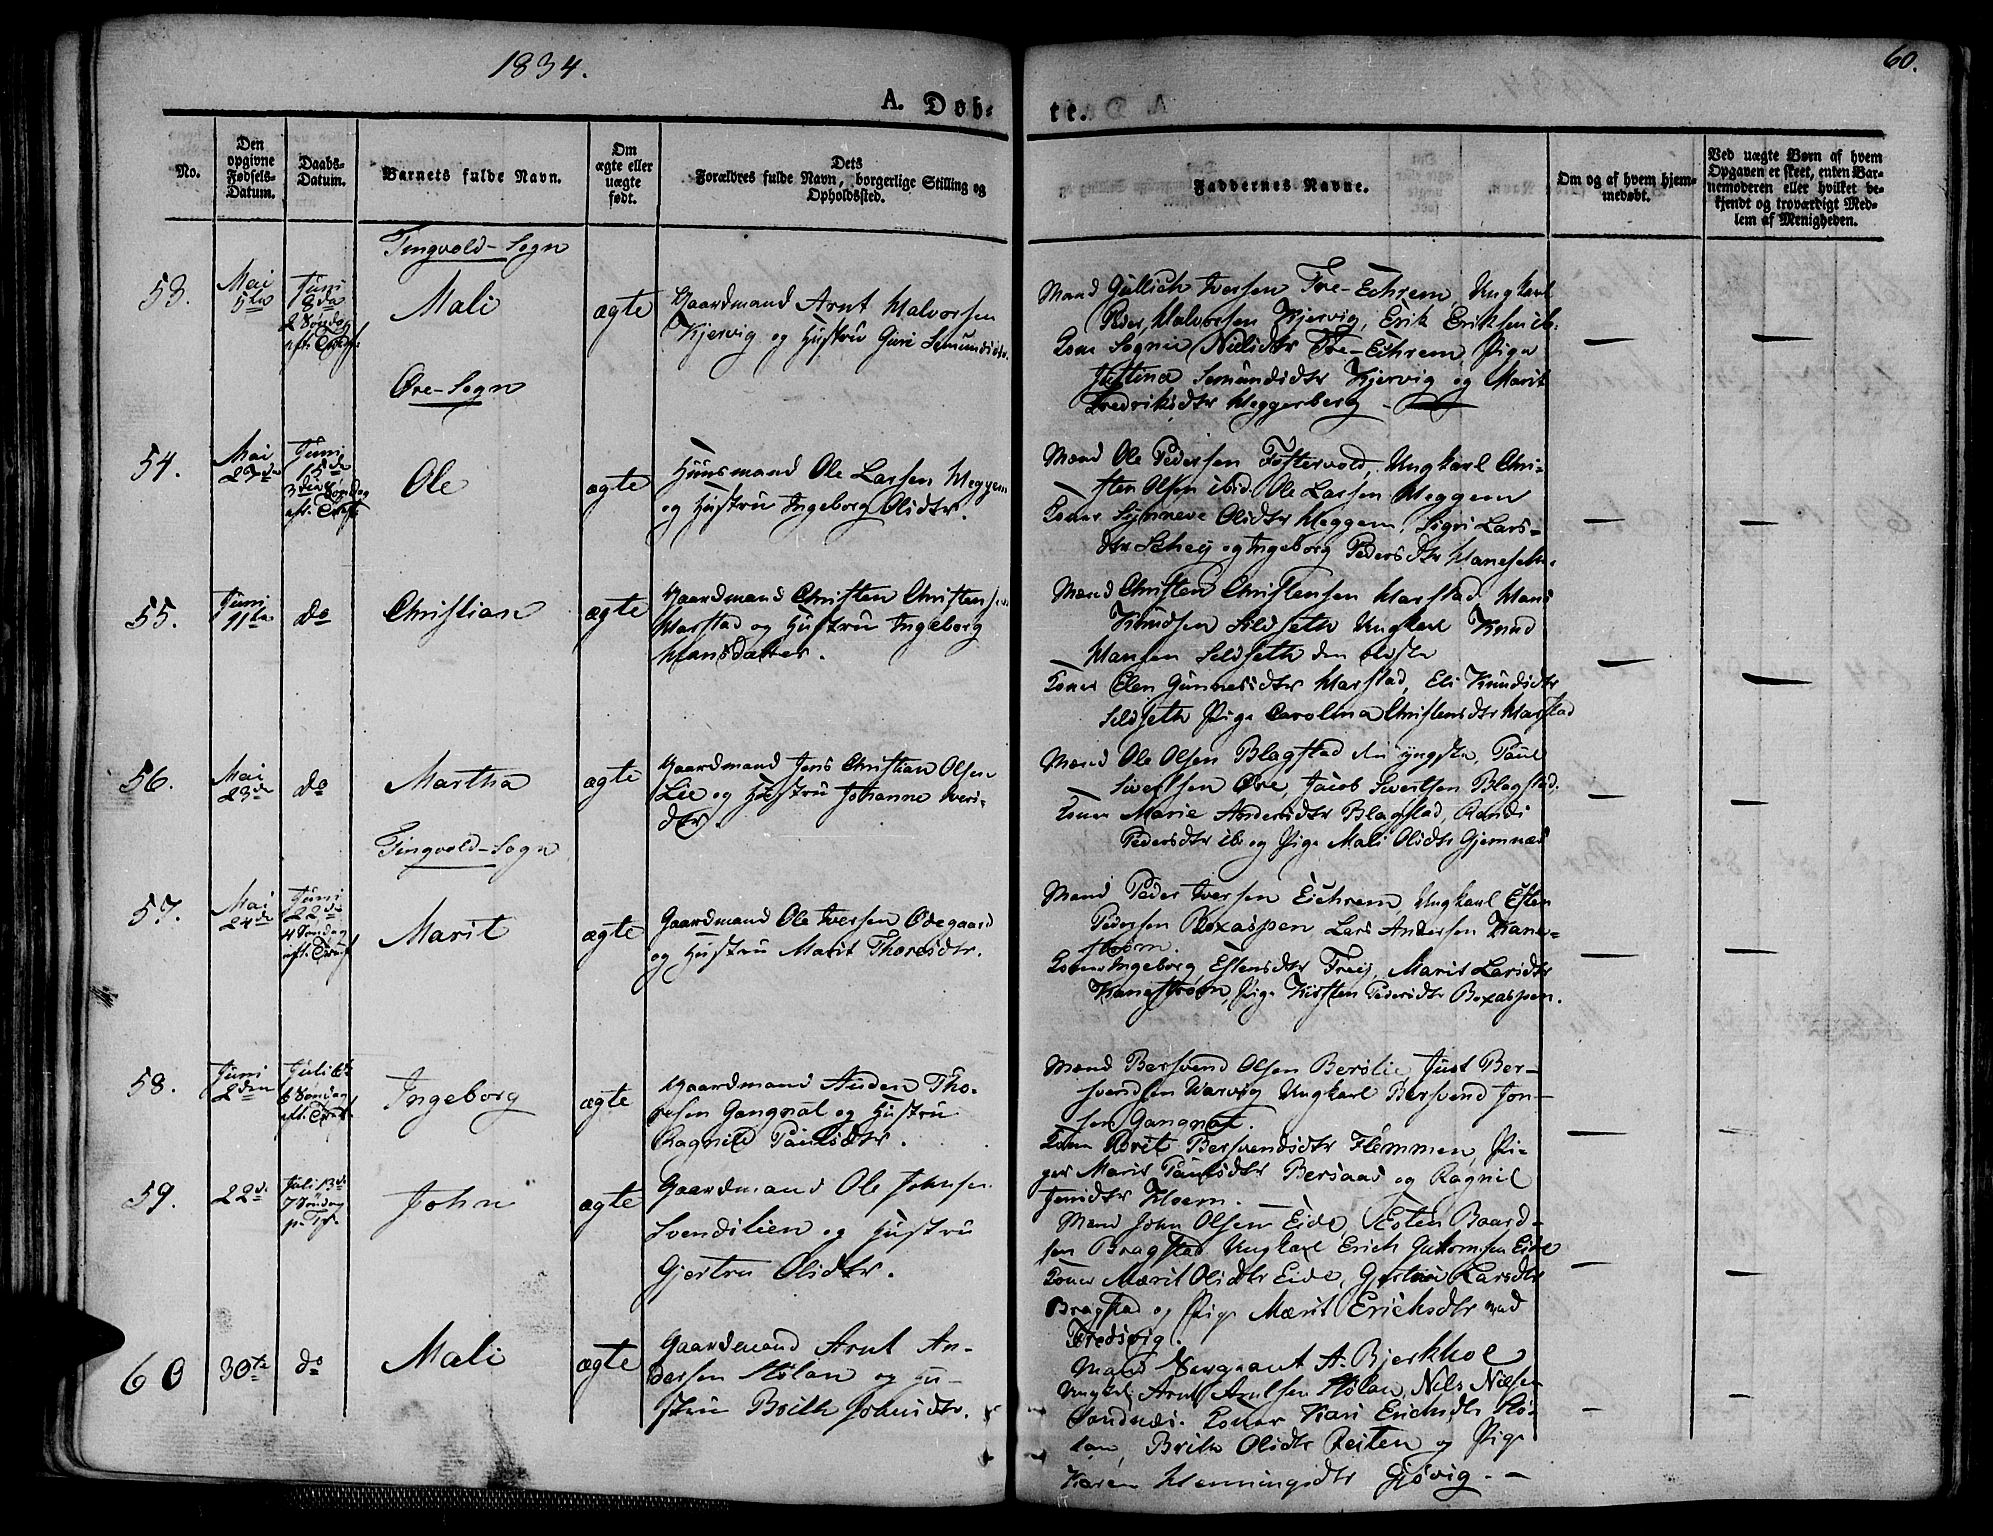 1834.
60.
A. Døb-
te.
No.
Den
opgivne
Fødsels-
Datum.
Daabs-
Datum.
Barnets fulde Navn.
Om
ægte eller
uægte
født.
Dets
Forældres fulde Navn, borgerlige Stilling og
Opholdssted.
Faddernes Navne.
Om og af hvem hjem-
medøbt.
Ved uægte Børn af hvem
Opgaven er skeet, enten Bar-
nemoderen eller hvilket be-
kjendt og troværdigt Med-
lem af Menigheden.
Tingvold-Sogn
53.
Mai
5te
Juni
8da
2 Søndag
eft. Trest.
Mali
ægte
Gaardmand Arnt Halvorsen
Kjervig og Hustru Guri Semundsdtr.
Mænd Gullich Iversen Fre-Echrem, Ungkarl
Peder Halvorsen Kjervig, Erik Eriksen ib.
Koner Sognie Nielsdtr Fre-Eichrem Pige
Justina Semundsdtr Kjervig og Marit
Fredriksdtr Heggerberg -
Øre-Sogn
54.
Mai
23de
Juni
15de
3die Søndag
eft. Tref.
Ole
ægte
Huusmand Ole Larsen Heggem
og Hustru Ingeborg Olsdtr.
Mænd Ole Pedersen Fostervold, Ungkarl Chri-
sten Olsen ibid. Ole Larsen Heggem
Koner Synneve Olsdtr Heggem, Sigri Lars-
dtr Schey og Ingeborg Pedersdtr Haneseth.
55.
Juni
11te
do
Christian
ægte
Gaardmand Christen Christensen
Harstad og Hustru Ingeborg
Hansdatter.
Mænd Christen Christensen Harstad. Hans
Knudsen Sildseth Ungkarl Knud
Hansen Seldseth den ældste
Koner Elen Gunnersdtr Harstad, Eli Knudsdtr
Seldseth Pige Carolina Christensdtr Harstad
56.
Mai
23de
do
Martha
ægte
Gaardmand Jens Christian Olsen
Lie og Hustru Johanne Iveri-
dtr.
Mænd Ole Olsen Blagstad den yngste, Paul
Sivertsen Øre, Jacob Sivertsen Blagstad.
Koner Marie Andersdtr Blagstad, Randi
Pedersdtr ib. og Pige Mali Olsdtr Gjemnæs
Tingvold-Sogn
57.
Mai
24de
Juni
22de
4 Søndag
eft. Tref.
Marit
ægte
Gaardmand Ole Iversen Ødegaard
og Hustru Marit Thoresdtr.
Mænd Peder Iversen Eichrem, Ungkarl Esten
Pedersen Boxaspen, Lars Andersen Kane-
strøm.
Koner Ingeborg Estensdtr Frey, Marit Larsdtr
Kanestrøm, Pige Kirsten Pedersdtr Boxaspen.
58.
Juni
2den
Juli 6te
6 Søndag
eft. Tref.
Ingeborg
ægte
Gaardmand Auden Tho-
resen Gangnat og Hustru
Ragnild Paulsdtr.
Mænd Bersvend Olsen Berslie, Just Ber-
svendsen Warvig Ungkarl Bersvend Jon-
sen Gangnat.
Koner Berit Bersvendsdtr Flemmen, Pi-
ger Marit Paulsdtr Bersaad og Ragnil
Jensdtr Hoem. -
59.
22de
Juli 13de
7 Søndag
p. Tref.
John
ægte
Gaardmand Ole Johnsen
Svendslien og Hustru
Gjertru Olsdtr.
Mænd John Olsen Eide, Esten Baard-
sen Bragstad Ungkarl Erich Guttormsen Eide
Koner Marit Olsdtr Eide, Gjertru Larsdtr
Bragstad og Pige Marit Erichsdtr
Fredsvig.
60
30te
do
Mali
ægte
Gaardmand Arnt An-
dersen Hølan og Hu-
stru Brith Johnsdtr.
Mænd Sergeant A. Bjerkhoe
Ungkl. Arnt Arntsen Hølan, Nils Nielsen
Sandnæs. Koner Kari Erichsdtr Hø-
lan, Brith Olsdtr Reiten og Pige
Karen Henningsdtr Gjøvig. -